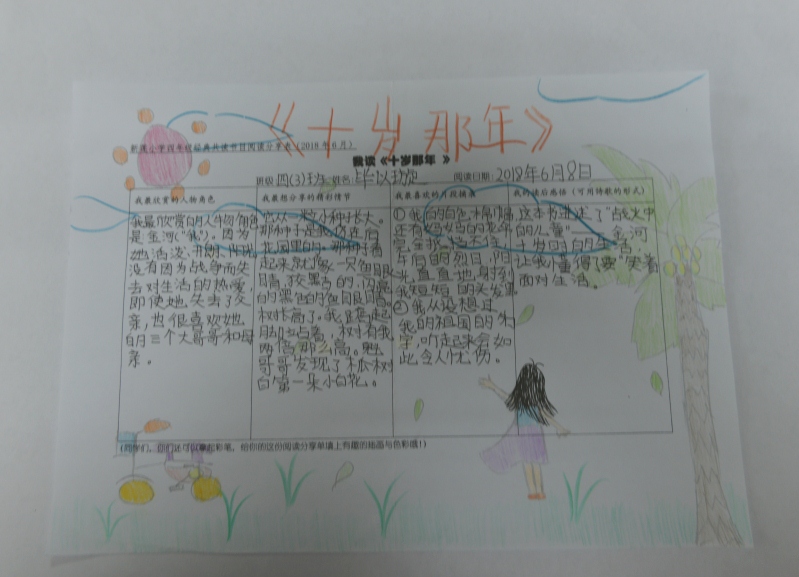 《十岁那年》
新隆小学四年级经典共读书目阅读分享表(2018年6月)
我读《十岁那年 》
班级 四(3)班 姓名 阅读日期:2018年6月8日
我最欣赏的人物角色
我最欣赏的人物角色
是金河("我")。因为
她活泼、开朗、
没有因为战争而失
去对生活的热爱
即使她失去了父
亲,也很喜欢她
的三个大哥哥和母
亲。
我最想分享的精彩情节
它从一粒小种子长大。
那种子是我撒在后
花园里的。那种子看
起来就像一只鱼眼
睛,孜黑的,闪亮
的黑色的鱼眼睛。
树长高了。我踮起
脚站着,树有我
两倍那么高。魁
哥哥发现了木瓜树
的第一朵小白花。
我最喜欢的片段摘录
①我的白色棉帽,
还有我乌黑的长发
完全挡不住
午后的烈日,阳
光直直地射到
我短短的头发里
②我从没想过
我的祖国的名
字,听起来会如
此令人忧伤。
我的读后感悟(可用诗歌的形式)
这本书讲述了"战火中
的儿童"——金河
十岁时的生活,
让我懂得了要"笑着
面对生活。
(同学们,你们还可以拿起彩笔,给你的这份阅读分享单填上有趣的插画与色彩哦!)